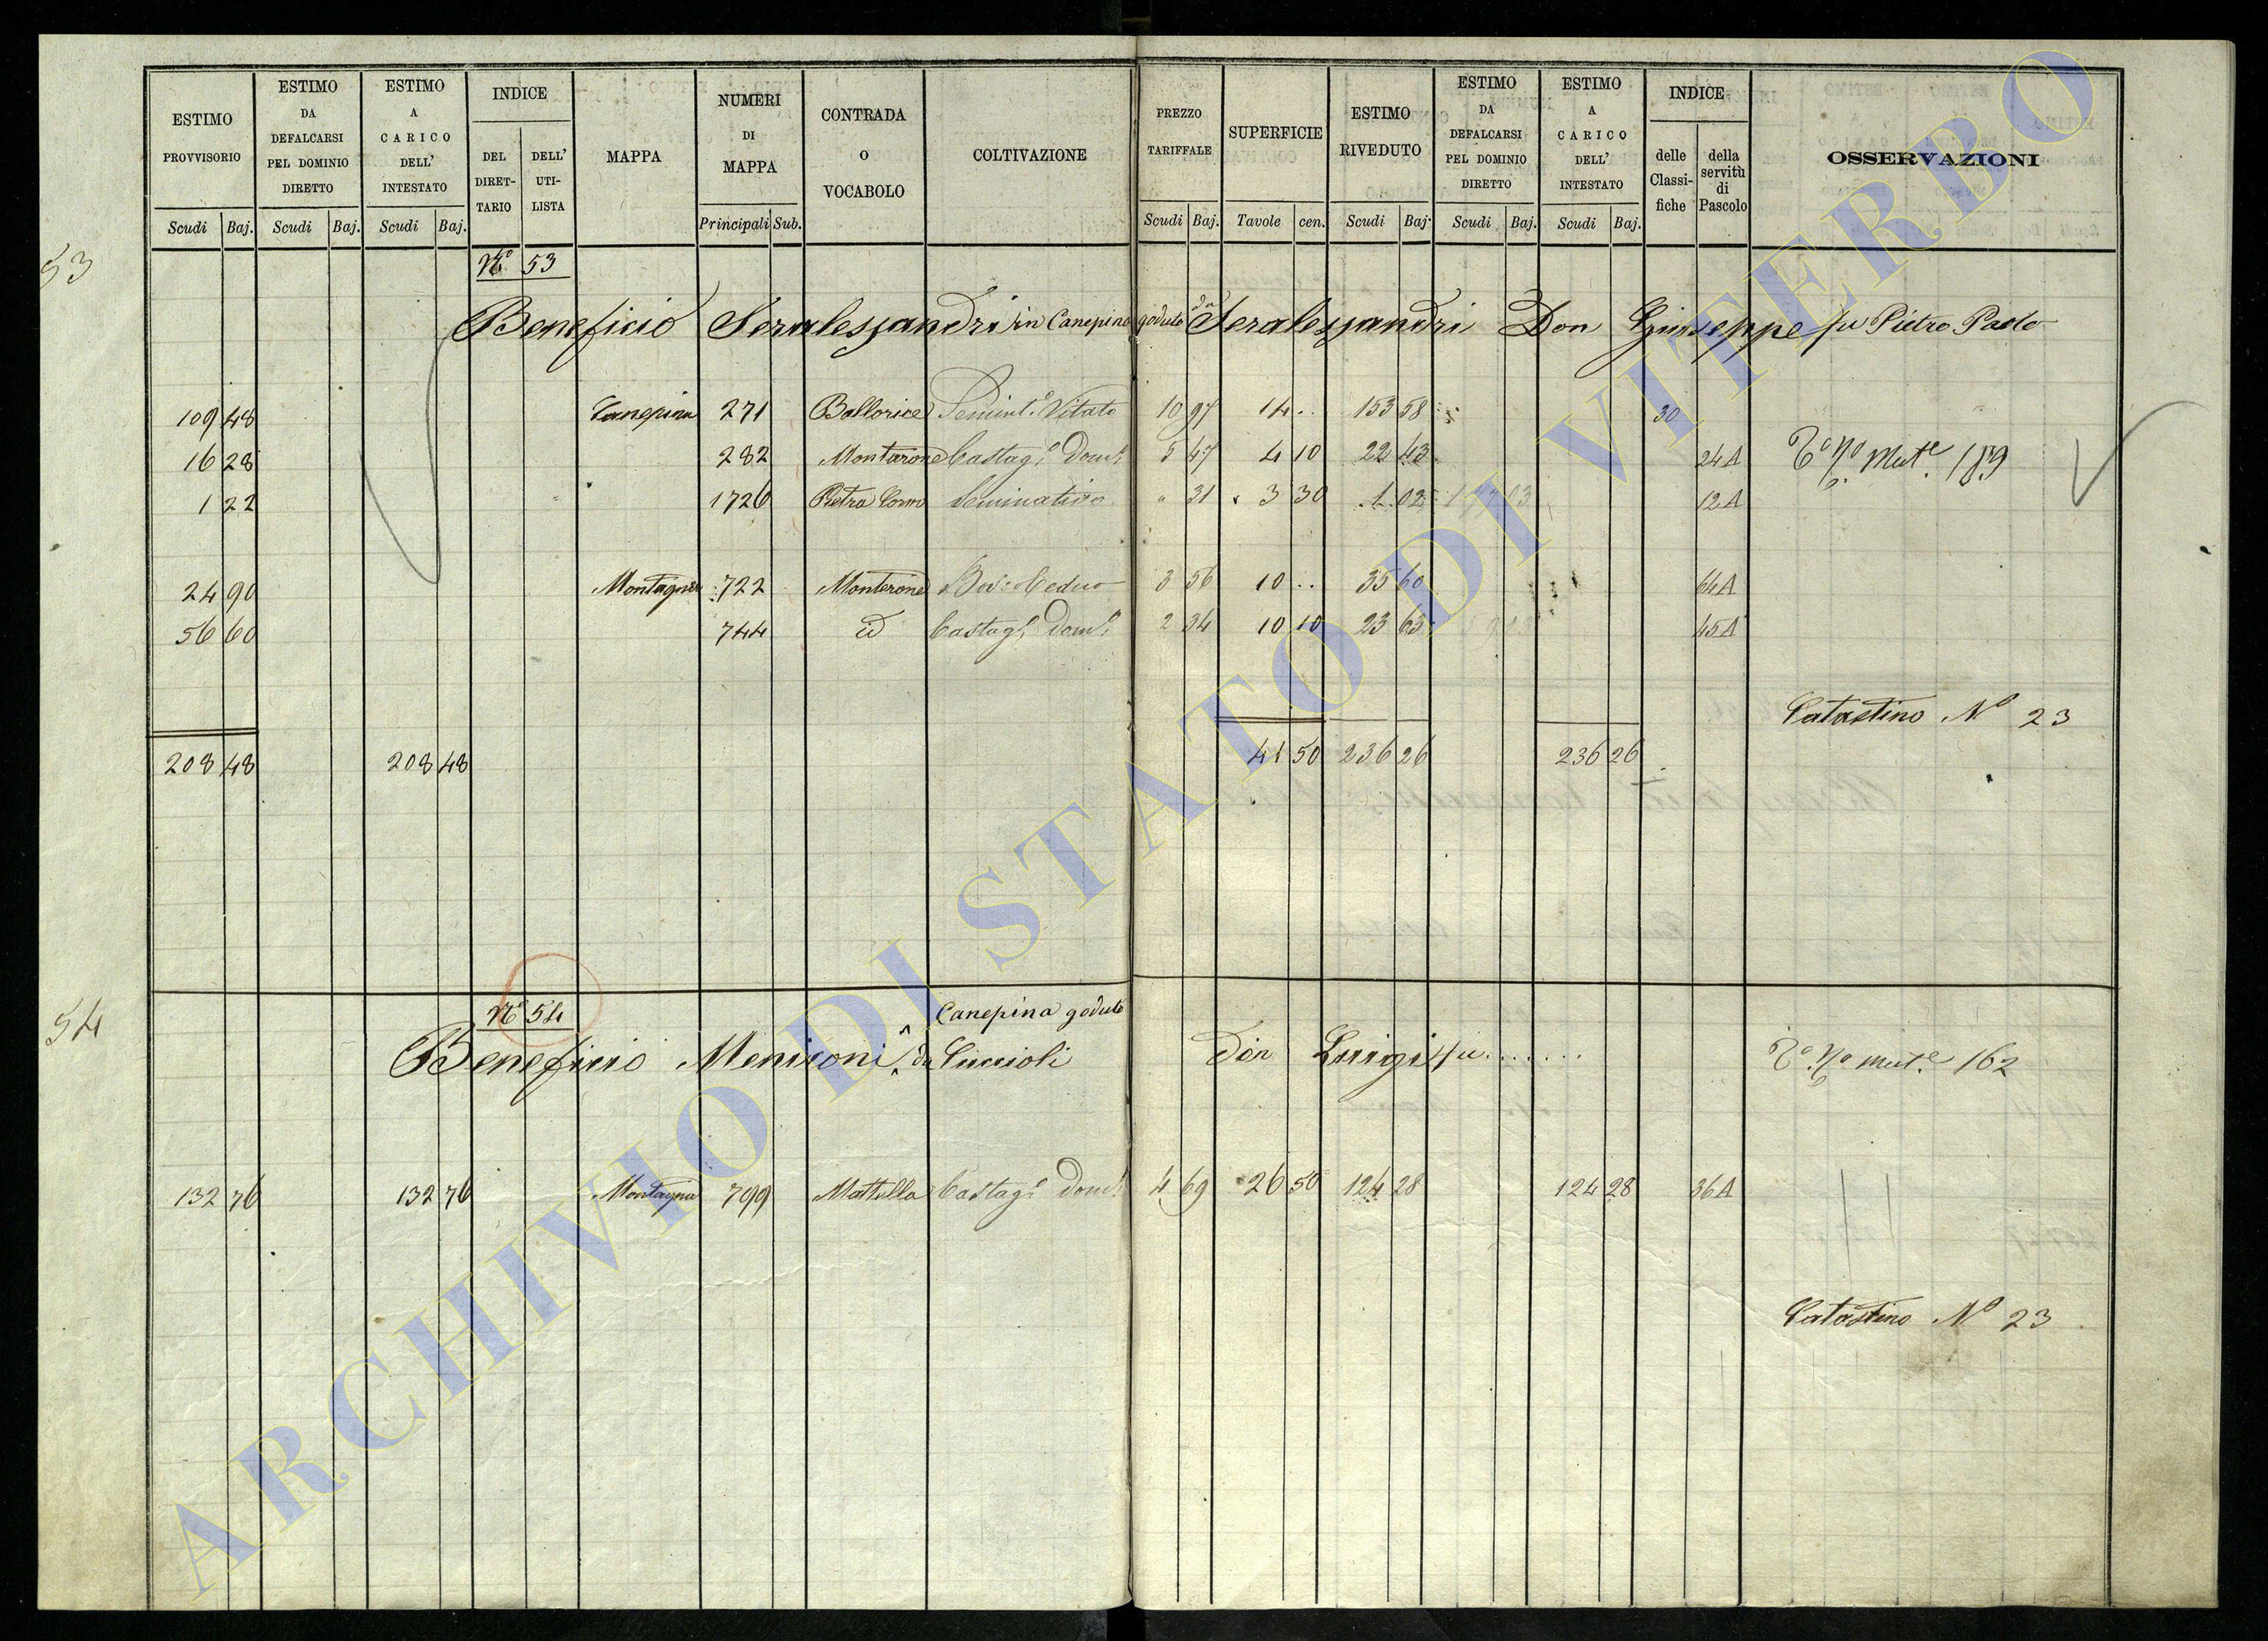 ESTIMO PROVVISORIO Scudi Baj. ESTIMO DA DEFALCARSI PEL DOMINIO DIRETTO Scudi Baj. ESTIMO A CARICO DELL' INTESTATO Scudi Baj. INDICE DEL DIRET- TARIO DELL' UTI- LISTA MAPPA NUMERI DI MAPPA Principali Sub. CONTRADA O VOCABOLO COLTIVAZIONE PREZZO TARIFFALE Scudi Baj. SUPERFICIE Tavole cen. ESTIMO RIVEDUTO Scudi Baj. ESTIMO DA DEFALCARSI PEL DOMINIO DIRETTO Scudi Baj. ESTIMO A CARICO DELL' INTESTATO Scudi Baj. INDICE delle Classi- fiche della servitù di Pascolo OSSERVAZIONI
53
N.º 53
Beneficio Seralessandri in Canepina goduto da Seralessandri Don Giuseppe fu Pietro Paolo
109 48 Canepina 271 Semint.º Vitato 10 97 14 .. 153 58 30
16 28 282 Montarone Castag.º Dom.º 5 47 4 10 22 43 24A Mut.e 189
1 22 1726 Pietra Seminativo " 31 3 30 1 02 12A
24 90 Montagna 722 Monterone Bos.º Ceduo 3 56 10 .. 35 60 64A
56 60 744 id Castag.º Dom.º 2 34 10 10 23 63 45A
Catastino Nº 23
208 48 208 48 41 50 236 26 236 26
54
Nº 54
Canepina goduto
Beneficio Meniconi da Cuccioli Don Luigi fu ....... Mut.e 162
132 76 132 76 Montagna 799 Mattella Castag.º Dom.º 4 69 26 50 124 28 124 28 36A
Catastino Nº 23
ARCHIVIO DI STATO DI VITERBO